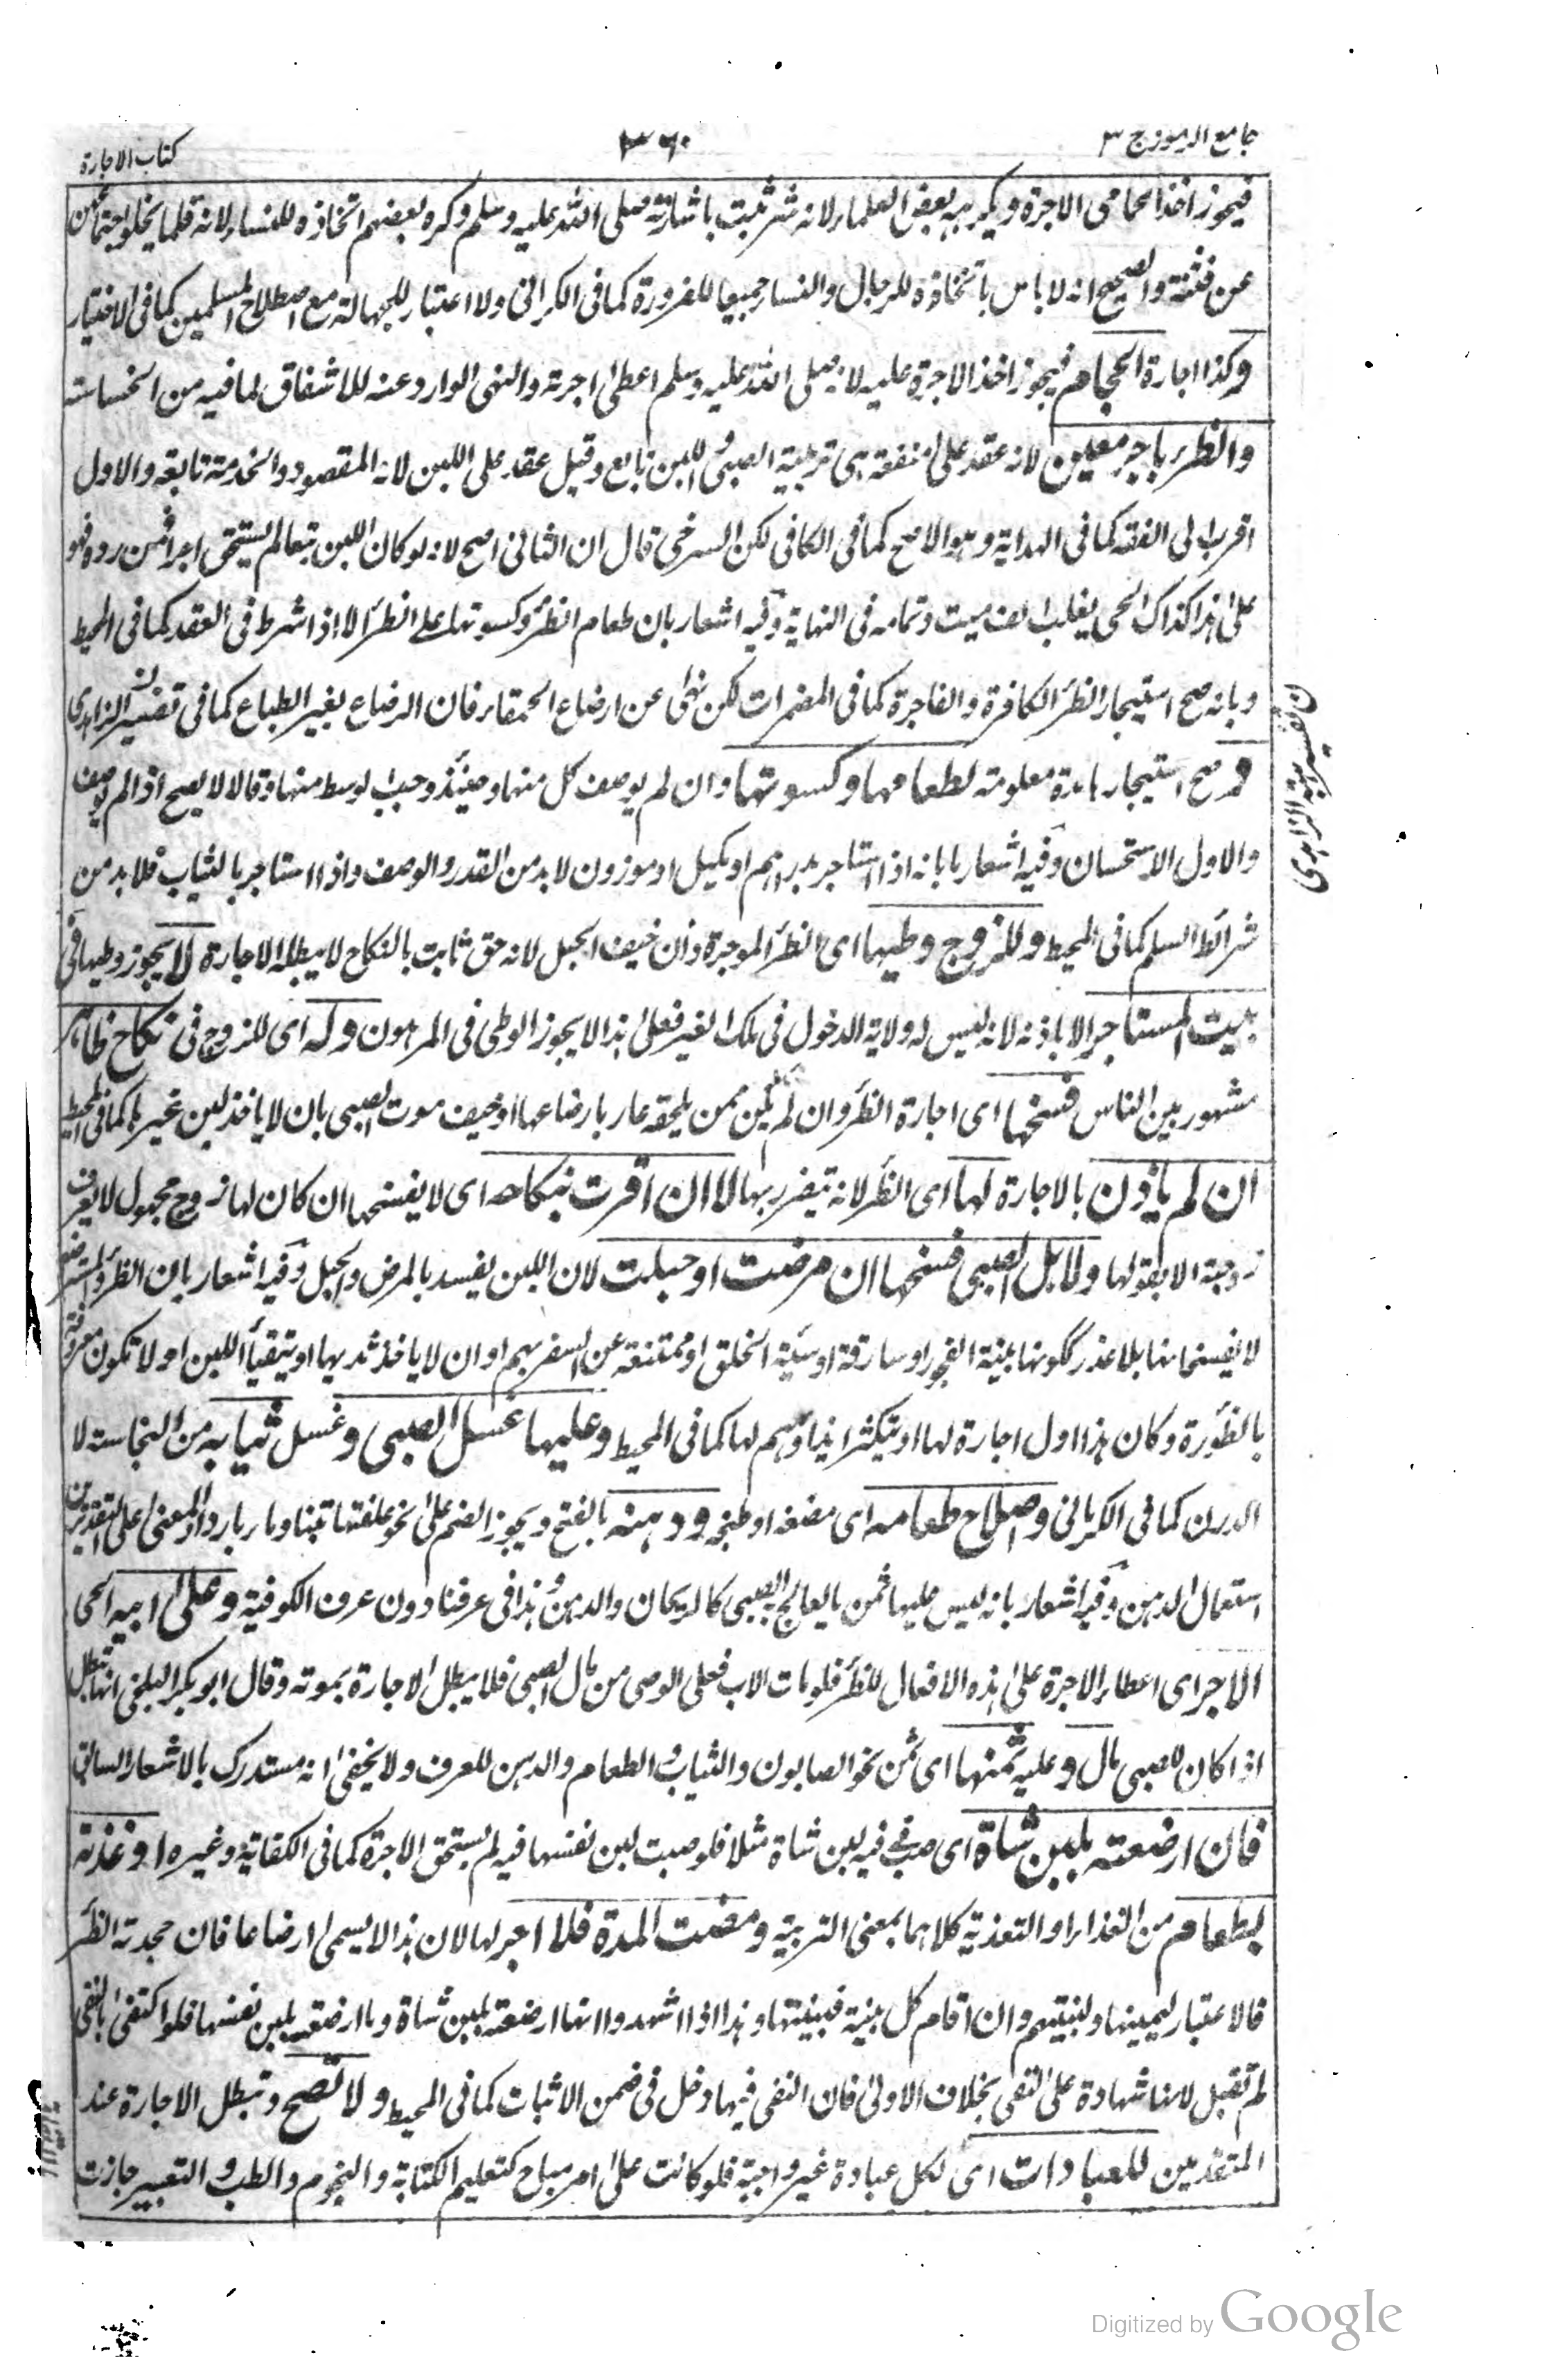 جامع الرموز ج ٣
٣٦٠
كتاب الاجارة
فيجوز اخذ الحمامى الاجرة ويكره عند بعض العلماء لانه شر بيت باشارته صلى الله عليه وسلم وكره بعضهم اتخاذه للنساء لانه قلما يخلو اجتماعهن
عن فتنة والصحيح انه لا باس باتخاذه للرجال والنساء جميعا للضرورة كما فى الكرمانى ولا اعتبار للجهالة مع اصطلاح المسلمين كما فى الاختيار
وكذا اجارة الحجام فيجوز اخذ الاجرة عليه لانه صلى الله عليه وسلم اعطى اجرته والنهى الوارد عنه للاشفاق لما فيه من الخساسة
والظئر باجر معين لانه عقد على منفعة هى تربية الصبى واللبن تابع وقيل عقد على اللبن لانه المقصود والخدمة تابعة والاول
اقرب الى الفقه كما فى الهداية وهو الاصح كما فى الكافى لكن السرخسى قال ان الثانى اصح لانه لو كان اللبن تبعا لم يستحق اجرا فمن رده فهو
على هذا كذاك الحى يغلب الف ميت وتمامه فى النهاية وفيه اشعار بان طعام الظئر وكسوتها على الظئر الا اذا شرط فى العقد كما فى المحيط
وبانه صح استيجار الظئر الكافرة والفاجرة كما فى المضمرات لكن نهى عن ارضاع الحمقاء فان الرضاع يغير الطباع كما فى تفسير الزاهدى
و صح استيجارها مدة معلومة لطعامها وكسوتها وان لم يوصف كل منها وحينئذ وجب الوسط منها وقالا لا يصح اذا لم يوصف
والاول الاستحسان وفيه اشعار بانه اذا استاجر بدراهم او بكيل او موزون لا بد من القدر والوصف واذا استاجر بالثياب فلا بد من
شرائط السلم كما فى المحيط وللزوج وطيها اى الظئر الموجرة وان خيف الحبل لانه حق ثابت بالنكاح لا يبطله الاجارة لا يجوز وطيها فى
بيت المستاجر الا باذنه لانه ليس له ولاية الدخول فى ملك الغير فعلى هذا لا يجوز الوطى فى المرهون وله اى للزوج فى نكاح ظاهر
مشهور بين الناس فسخها اى اجارة الظئر وان لم يكن ممن يلحقه عار بارضاعها او خيف موت الصبى بان لا ياخذ لبن غيرها كما فى المحيط
ان لم ياذن بالاجارة لها اى الظئر لانه يتضرر بها لا ان اقرت بنكاحه اى لا يفسخها ان كان لها زوج مجهول لا يعرف
زوجيته الا بقولها ولاهل الصبى فسخها ان مرضت او حبلت لان اللبن يفسد بالمرض والحبل وفيه اشعار بان الظئر والمسترضع
لا يفسخانها بلا عذر ككونها بينة الفجور او سارقة او سيئة الخلق او ممتنعة عن السفر بهم او ان لا ياخذ ثديها او يتقيأ اللبن او لا تكون معروفة
بالظؤرة وكان هذا اول اجارة لها او يتكثر ايذاؤهم لها كما فى المحيط وعليها غسل الصبى وغسل ثيابه من النجاسة لا
الدرن كما فى الكرمانى واصلاح طعامه اى مضغه او طبخه ودهنه بالفتح ويجوز الضم على نحو علفتها تبنا وماء باردا والمعنى على التقديرين
استعمال الدهن وفيه اشعار بانه ليس عليها ثمن ما يعالج به الصبى كالريحان والدهن وهذا فى عرفنا دون عرف الكوفية وعلى ابيه الحى
الاجر اى اعطاء الاجرة على هذه الافعال للظئر فلو مات الاب فعلى الوصى من مال الصبى فلا يبطل الاجارة بموته وقال ابو بكر البلخى انها تبطل
اذا كان للصبى مال وعليه ثمنها اى ثمن نحو الصابون والثياب والطعام والدهن للعرف ولا يخفى انه مستدرك بالاشعار السابق
فان ارضعته بلبن شاة اى صب فى فيه لبن شاة مثلا فلو صبت لبن نفسها فيه لم يستحق الاجرة كما فى الكفاية وغيره او غذته
بطعام من الغذاء او التغذية كلاهما بمعنى التربية ومضت المدة فلا اجر لها لان هذا لا يسمى ارضاعا فان جحدته الظئر
فالاعتبار ليمينها ولبينتهم وان اقام كل بينة فبينتها وهذا اذا شهدوا انها ارضعته بلبن شاة وما ارضعته بلبن نفسها فلو اكتفى بالنفى
لم تقبل لانها شهادة على النفى بخلاف الاولى فان النفى فيها دخل فى ضمن الاثبات كما فى المحيط ولا تصح وتبطل الاجارة عند
المتقدمين للعبادات اى لكل عبادة غير واجبة فلو كانت على امر مباح كتعليم الكتابة والنجوم والطب والتعبير جازت
Digitized by Google